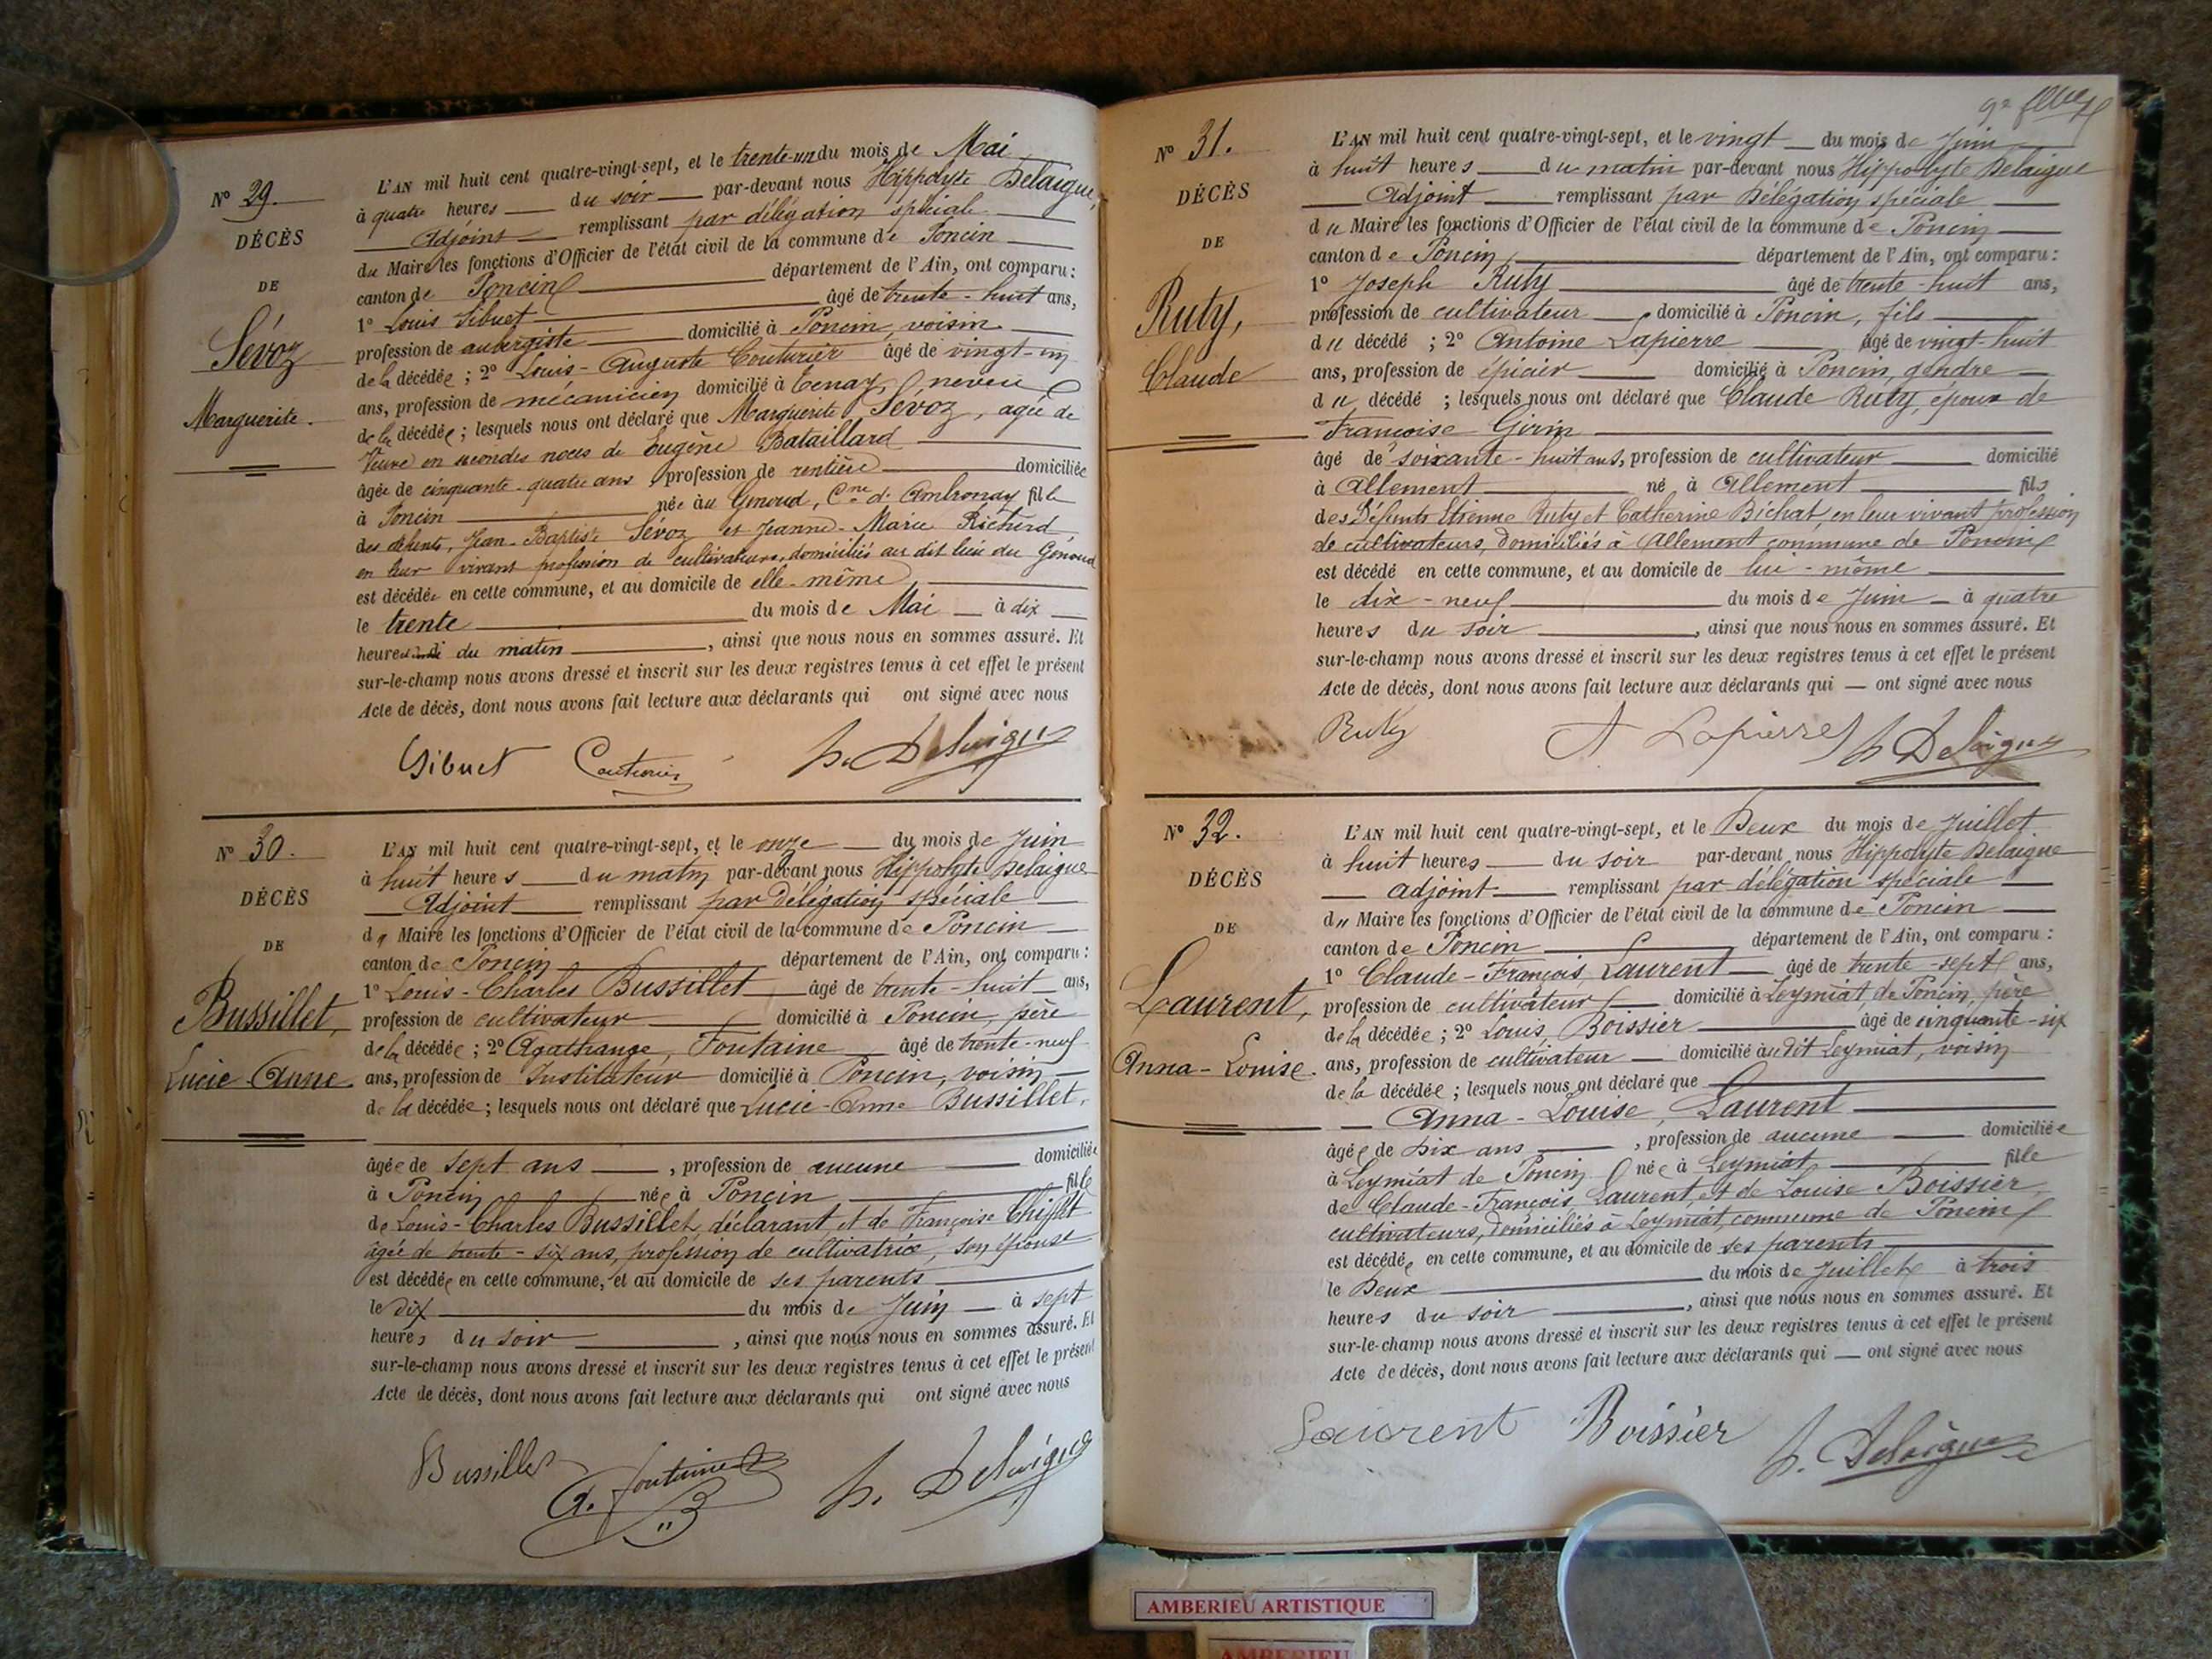 Nº 29.
DÉCÈS
DE
Sévoz
Marguerite.
L'AN mil huit cent quatre-vingt-sept, et le trente-un du mois de Mai
à quatre heures du soir par-devant nous Hippolyte Delaigue,
Adjoint remplissant par délégation spéciale
du Maire les fonctions d'Officier de l'état civil de la commune de Poncin
canton de Poncin département de l'Ain, ont comparu :
1º Louis Sibuet âgé de trente-huit ans,
profession de aubergiste domicilié à Poncin, voisin
de la décédée ; 2º Louis-Auguste Couturier âgé de vingt-un
ans, profession de mécanicien domicilié à Tenay, neveu
de la décédée ; lesquels nous ont déclaré que Marguerite Sévoz, agée de
Veuve en secondes noces de Eugène Bataillard
âgée de cinquante-quatre ans profession de rentière domiciliée
à Poncin née au Genoud, Cne d'Ambronay fille
des défunts, Jean-Baptiste Sévoz et Jeanne-Marie Richerd
en leur vivant profession de cultivateurs, domiciliés au dit lieu du Genoud
est décédée en cette commune, et au domicile de elle-même
le trente du mois de Mai à dix
heures du matin , ainsi que nous nous en sommes assuré. Et
sur-le-champ nous avons dressé et inscrit sur les deux registres tenus à cet effet le présent
Acte de décès, dont nous avons fait lecture aux déclarants qui ont signé avec nous
Sibuet Couturier h. Delaigue
Nº 30.
DÉCÈS
DE
Bussillet,
Lucie-Anne
L'AN mil huit cent quatre-vingt-sept, et le onze du mois de Juin
à huit heures du matin par-devant nous Hippolyte Delaigue
Adjoint remplissant par Délégation spéciale
du Maire les fonctions d'Officier de l'état civil de la commune de Poncin
canton de Poncin département de l'Ain, ont comparu :
1º Louis-Charles Bussillet âgé de trente-huit ans,
profession de cultivateur domicilié à Poncin, père
de la décédée ; 2º Agathange, Fontaine âgé de trente-neuf
ans, profession de Instituteur domicilié à Poncin, voisin
de la décédée ; lesquels nous ont déclaré que Lucie-Anne Bussillet,
âgée de sept ans , profession de aucune domiciliée
à Poncin née à Poncin fille
de Louis-Charles Bussillet, déclarant, et de Françoise Chifflet
âgée de trente-six ans, profession de cultivatrice, son épouse
est décédée en cette commune, et au domicile de ses parents
le dix du mois de Juin à sept
heures du soir , ainsi que nous nous en sommes assuré. Et
sur-le-champ nous avons dressé et inscrit sur les deux registres tenus à cet effet le présent
Acte de décès, dont nous avons fait lecture aux déclarants qui ont signé avec nous
Bussillet A. fontaine h. Delaigue
Nº 31.
DÉCÈS
DE
Ruty,
Claude
L'AN mil huit cent quatre-vingt-sept, et le vingt du mois de Juin
à huit heures du matin par-devant nous Hippolyte Delaigue
Adjoint remplissant par Délégation spéciale
du Maire les fonctions d'Officier de l'état civil de la commune de Poncin
canton de Poncin département de l'Ain, ont comparu :
1º Joseph Ruty âgé de trente-huit ans,
profession de cultivateur domicilié à Poncin, fils
du décédé ; 2º Antoine Lapierre âgé de vingt-huit
ans, profession de épicier domicilié à Poncin, gendre
du décédé ; lesquels nous ont déclaré que Claude Ruty, époux de
Françoise Girin
âgé de soixante-huit ans, profession de cultivateur domicilié
à Allement né à Allement fils
des Défunts Etienne Ruty et Catherine Bichat, en leur vivant profession
de cultivateurs, Domiciliés à Allement commune de Poncin
est décédé en cette commune, et au domicile de lui-même
le dix-neuf du mois de Juin à quatre
heures du soir , ainsi que nous nous en sommes assuré. Et
sur-le-champ nous avons dressé et inscrit sur les deux registres tenus à cet effet le présent
Acte de décès, dont nous avons fait lecture aux déclarants qui ont signé avec nous
Ruty A Lapierre h Delaigue
Nº 32.
DÉCÈS
DE
Laurent,
Anna-Louise.
L'AN mil huit cent quatre-vingt-sept, et le Deux du mois de Juillet
à huit heures du soir par-devant nous Hippolyte Delaigue
adjoint remplissant par délégation spéciale
du Maire les fonctions d'Officier de l'état civil de la commune de Poncin
canton de Poncin département de l'Ain, ont comparu :
1º Claude-François, Laurent âgé de trente-sept ans,
profession de cultivateur domicilié à Leymiat, de Poncin, père
de la décédée ; 2º Louis, Boissier âgé de cinquante-six
ans, profession de cultivateur domicilié audit Leymiat, voisin
de la décédée ; lesquels nous ont déclaré que
Anna-Louise, Laurent
âgée de Dix ans , profession de aucune domiciliée
à Leymiat de Poncin née à Leymiat fille
de Claude-François Laurent, et de Louise Boissier,
cultivateurs, Domiciliés à Leymiat, commune de Poncin
est décédée en cette commune, et au domicile de ses parents
le Deux du mois de Juillet à trois
heures du soir , ainsi que nous nous en sommes assuré. Et
sur-le-champ nous avons dressé et inscrit sur les deux registres tenus à cet effet le présent
Acte de décès, dont nous avons fait lecture aux déclarants qui ont signé avec nous
Laurent Boissier h. Delaigue
AMBERIEU ARTISTIQUE
AMBERIEU